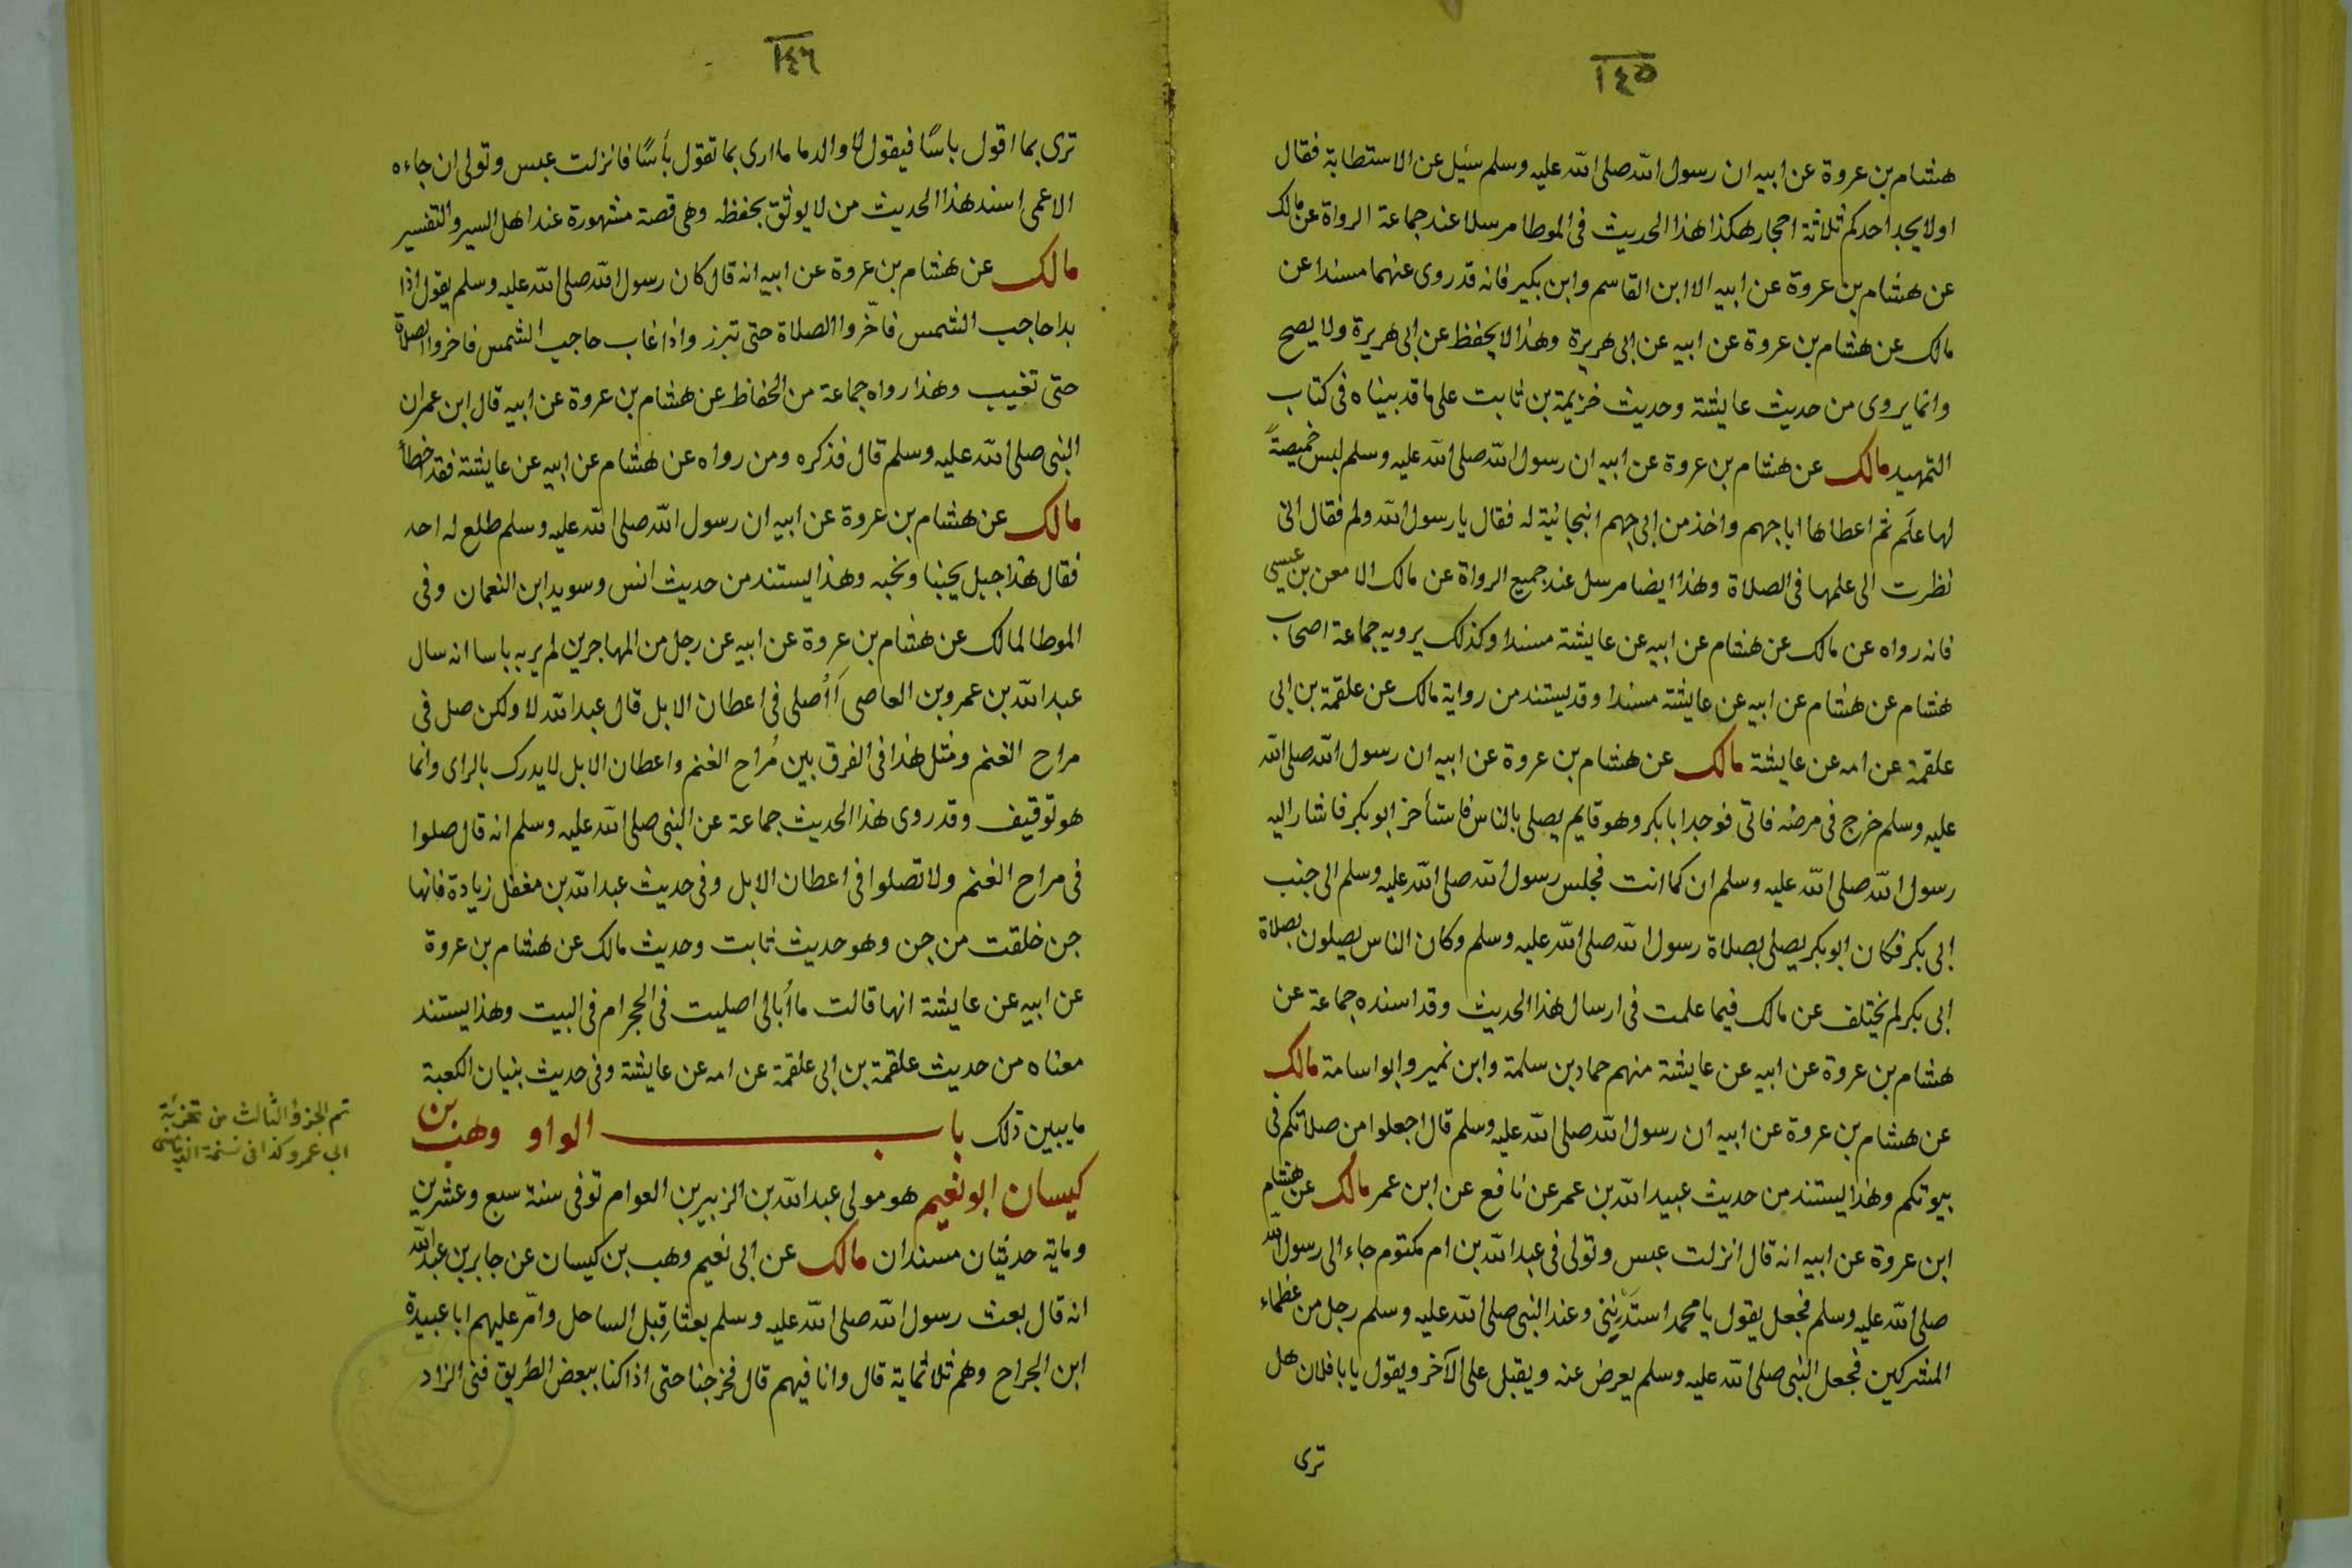 ١٤٥
هشام بن عروة عن ابيه ان رسول الله صلى الله عليه وسلم سئيل عن الاستطابة فقال
اولا يجد احدكم ثلاثة احجار هكذا هذا الحديث فى الموطا مرسلا عند جماعة الرواة عن مالك
عن هشام بن عروة عن ابيه الا ابن القاسم وابن بكير فانه قد روى عنهما مسندا عن
مالك عن هشام بن عروة عن ابيه عن ابى هريرة وهذا لا يحفظ عن ابى هريرة ولا يصح
وانما يروى من حديث عايشة وحديث خزيمة بن ثابت على ما قد بيناه فى كتاب
التمهيد مالك عن هشام بن عروة عن ابيه ان رسول الله صلى الله عليه وسلم لبس خميصةً
لها علَم ثم اعطاها ابا جهم واخذ من ابى جهم انبجانية له فقال يا رسول الله ولم فقال انى
نظرت الى علمها فى الصلاة وهذا ايضا مرسل عند جميع الرواة عن مالك الا معن بن عيسى
فانه رواه عن مالك عن هشام عن ابيه عن عايشة مسندا وكذلك يرويه جماعة اصحاب
هشام عن هشام عن ابيه عن عايشة مسندا وقد يستند من رواية مالك عن علقمة بن ابى
علقمة عن امه عن عايشة مالك عن هشام بن عروة عن ابيه ان رسول الله صلى الله
عليه وسلم خرج فى مرضه فاتى فوجد ابا بكر وهو قايم يصلى بالناس فاستأخر ابو بكر فاشار اليه
رسول الله صلى الله عليه وسلم ان كما انت فجلس رسول الله صلى الله عليه وسلم الى جنب
ابى بكر فكان ابو بكر يصلى بصلاة رسول الله صلى الله عليه وسلم وكان الناس يصلون بصلاة
ابى بكر لم يختلف عن مالك فيما علمت فى ارسال هذا الحديث وقد اسنده جماعة عن
هشام بن عروة عن ابيه عن عايشة منهم حماد بن سلمة وابن نمير وابو اسامة مالك
عن هشام بن عروة عن ابيه ان رسول الله صلى الله عليه وسلم قال اجعلوا من صلاتكم فى
بيوتكم وهذا يستند من حديث عبيد الله بن عمر عن نافع عن ابن عمر مالك عن هشام
ابن عروة عن ابيه انه قال انزلت عبس وتولى فى عبد الله بن ام مكتوم جاء الى رسول الله
صلى الله عليه وسلم فجعل يقول يا محمد استدنينى وعند النبى صلى الله عليه وسلم رجل من عظماء
المشركين فجعل النبى صلى الله عليه وسلم يعرض عنه ويقبل على الآخر ويقول يا با فلان هل
ترى
١٤٦
ترى بما اقول باسًا فيقول لا والدما ما ارى بما تقول بأسًا فانزلت عبس وتولى ان جاءه
الاعمى اسند هذا الحديث من لا يوثق بحفظه وهى قصة مشهورة عند اهل السير والتفسير
مالك عن هشام بن عروة عن ابيه انه قال كان رسول الله صلى الله عليه وسلم يقول اذا
بدا حاجب الشمس فاخّروا الصلاة حتى تبرز واذا غاب حاجب الشمس فاخروا الصلاة
حتى تغيب وهذا رواه جماعة من الحفاظ عن هشام بن عروة عن ابيه قال ابن عمر ان
النبى صلى الله عليه وسلم قال فذكره ومن رواه عن هشام عن ابيه عن عايشة فقد اخطأ
مالك عن هشام بن عروة عن ابيه ان رسول الله صلى الله عليه وسلم طلع له احد
فقال هذا جبل يحبنا ونحبه وهذا يستند من حديث انس وسويد ابن النعمان وفى
الموطا لمالك عن هشام بن عروة عن ابيه عن رجل من المهاجرين لم ير به باسا انه سال
عبد الله بن عمرو بن العاصى أأُصلى فى اعطان الابل قال عبد الله لا ولكن صل فى
مراح الغنم ومثل هذا فى الفرق بين مُراح الغنم واعطان الابل لا يدرك بالراى وانما
هو توقيف وقد روى هذا الحديث جماعة عن النبى صلى الله عليه وسلم انه قال صلوا
فى مراح الغنم ولا تصلوا فى اعطان الابل وفى حديث عبد الله بن مغفل زيادة فانها
جن خلقت من جن وهو حديث ثابت وحديث مالك عن هشام بن عروة
عن ابيه عن عايشة انها قالت ما أُبالى اصليت فى الحجر ام فى البيت وهذا يستند
معناه من حديث علقمة بن ابى علقمة عن امه عن عايشة وفى حديث بنيان الكعبة
ما يبين ذلك باب الواو وهب بن
كيسان ابو نعيم هو مولى عبد الله بن الزبير بن العوام توفى سنة سبع وعشرين
وماية حديثان مسندان مالك عن ابى نعيم وهب بن كيسان عن جابر بن عبد الله
انه قال بعث رسول الله صلى الله عليه وسلم بعثا قِبل الساحل وامّر عليهم ابا عبيدة
ابن الجراح وهم ثلاثماية قال وانا فيهم قال فخرجنا حتى اذا كنا ببعض الطريق فنى الزاد
تم الجزؤ الثالث من تجزئة
ابى عمرو كذا فى نسخة